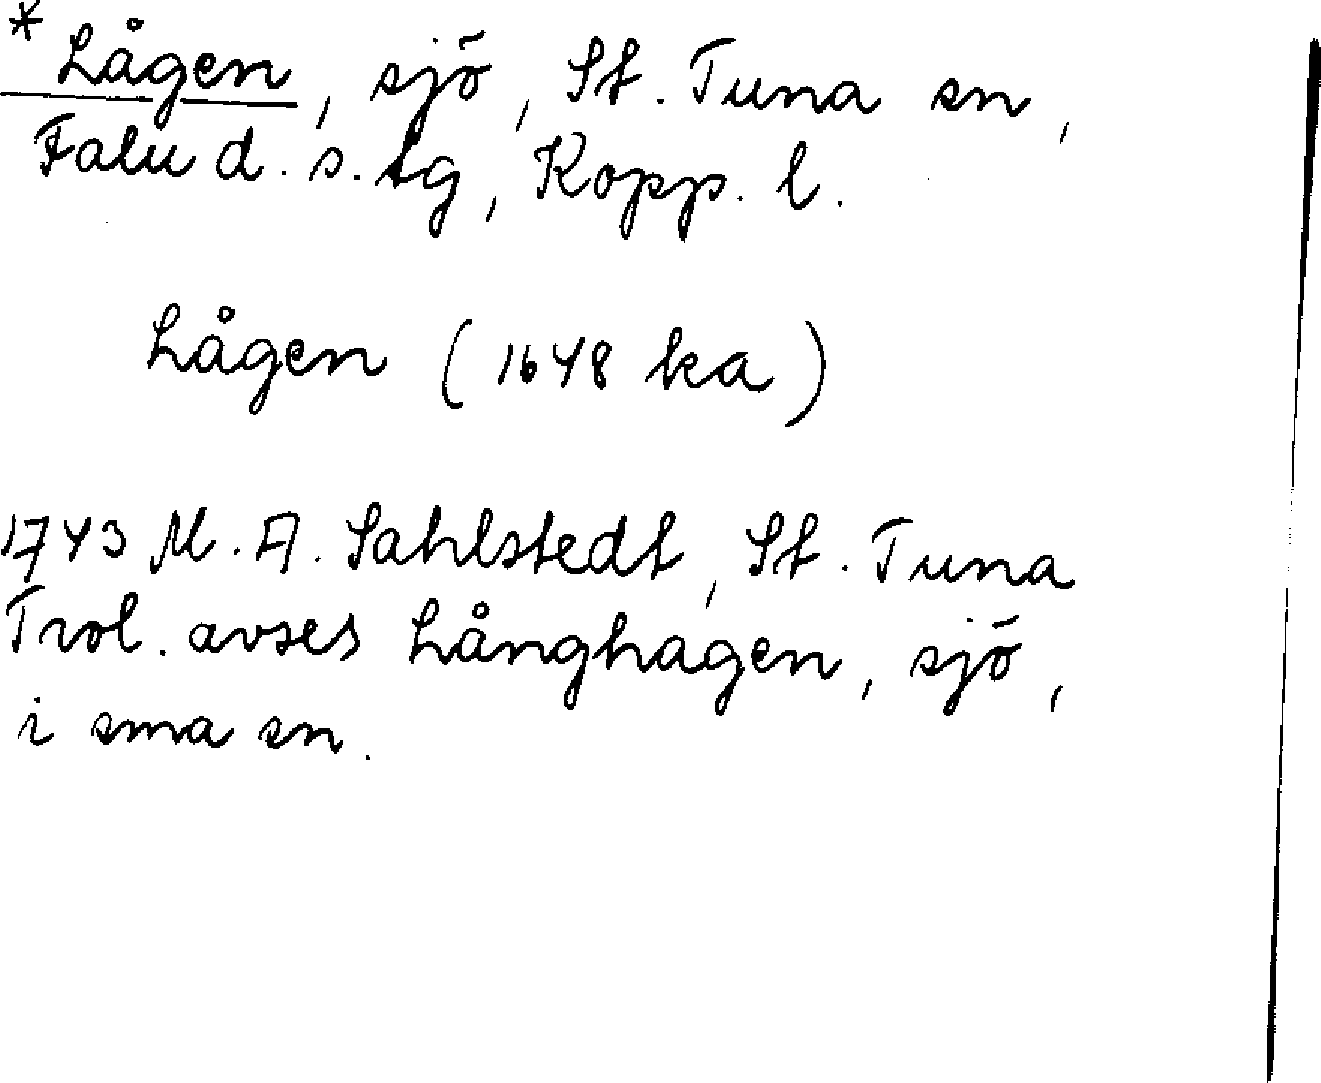 * Lågen, sjö, St. Tuna sn,
Falu d. s. tg, Kopp. l.
Lågen (1648 ka)
1743 M. A. Sahlstedt, St. Tuna
Trol. avses Långhagen, sjö,
i sma sn.